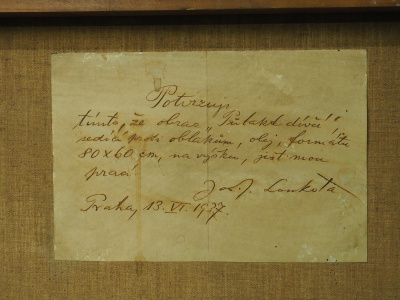 Potvrzuji,
tímto, že obraz „Půlakt dívčí",
sedící proti oblakům, olej, formátu
80x60 cm, na výšku, jest mou
prací.
Jos. Loukota
Praha, 13. VI. 1937.